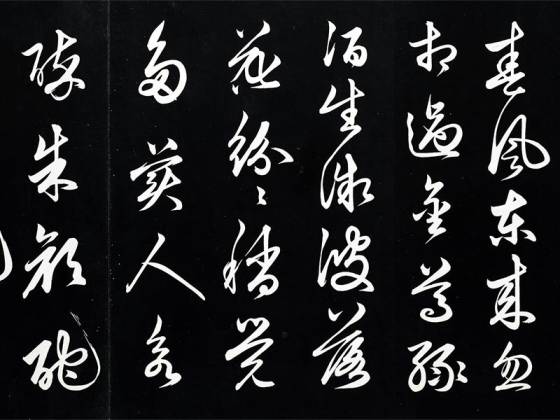 春風東來忽
相過金尊綠
酒生微波落
花紛紛稍覺
多美人欲
醉朱顏酡